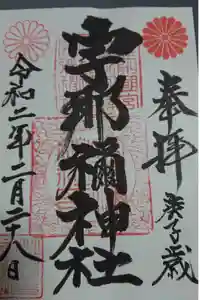 奉拝
庚子歳
宇那禰神社
令和二年二月二十八日